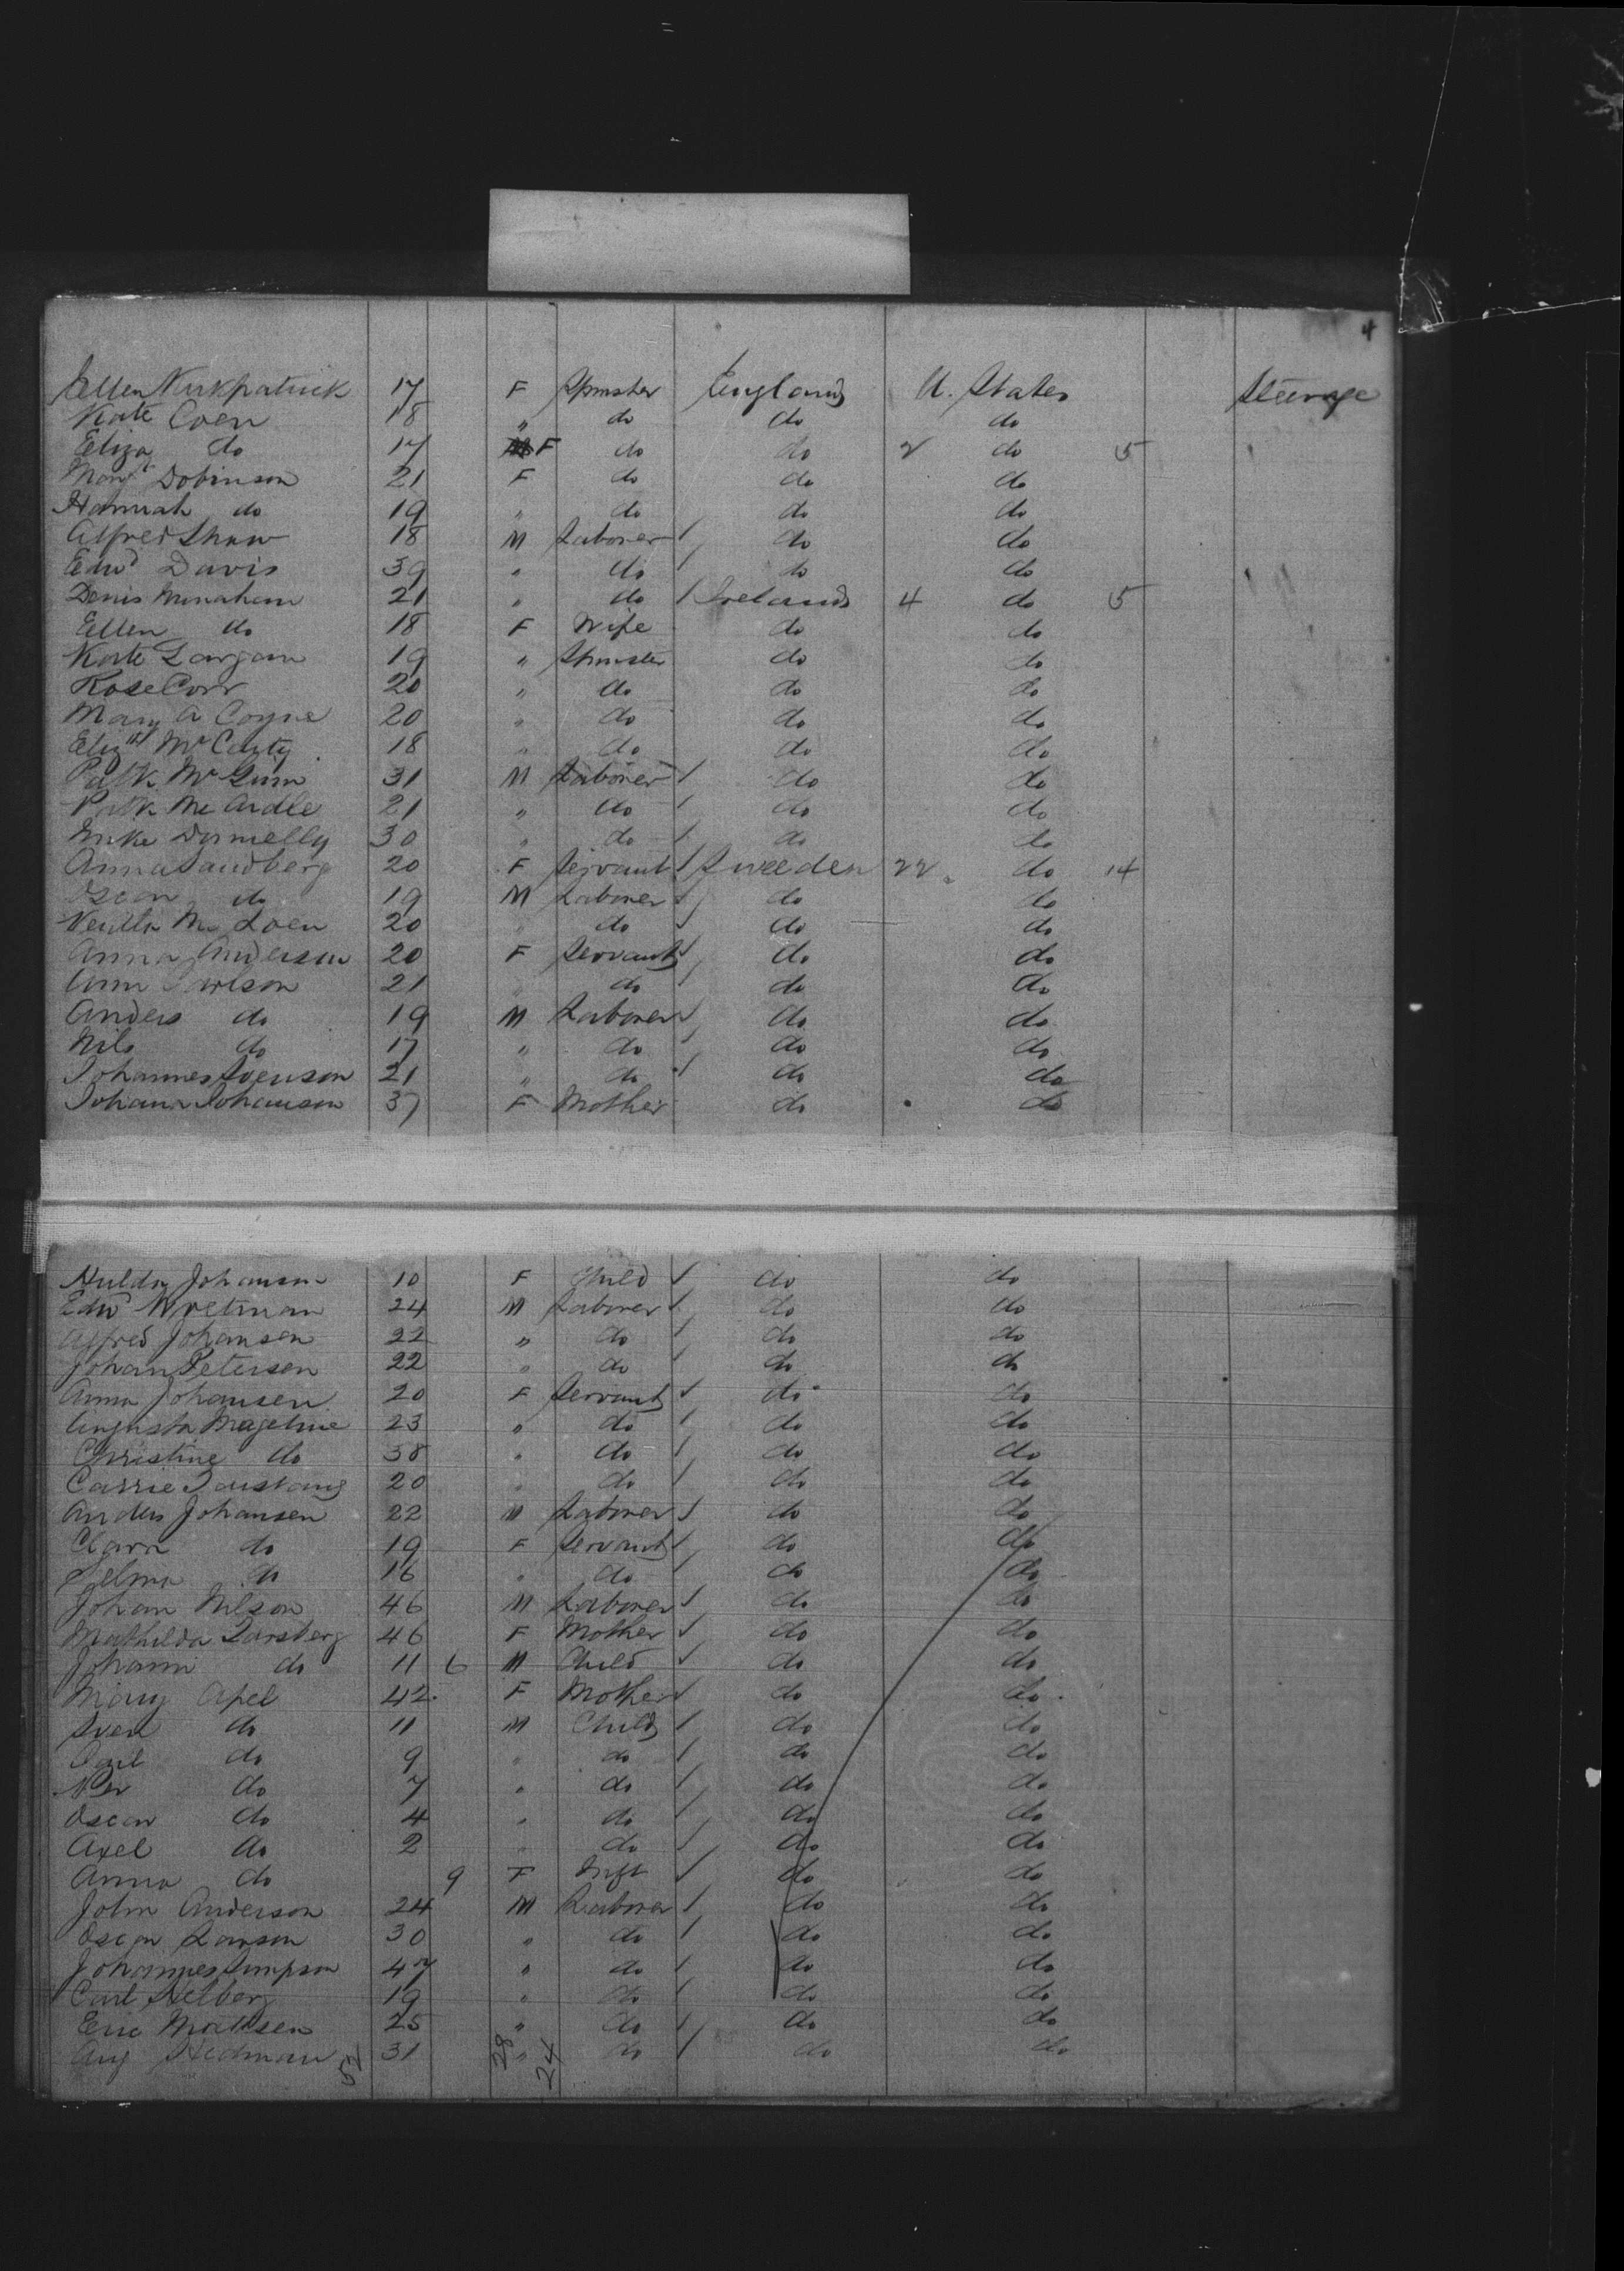 4
Ellen Kirkpatrick 17 F Spinster England U. States Steerage
Kate Coen 18 " do do do
Eliza do 17 F do do 2 do 5
Margt Dobinson 21 F do do do
Hannah do 19 " do do do
Alfred Shaw 18 M Laborer / do do
Edwd Davis 39 " do / do do
Denis Minahan 21 " do / Ireland 4 do 5
Ellen do 18 F Wife do do
Kate Largan 19 " Spinster do do
Rose Corr 20 " do do do
Mary A Coyne 20 " do do do
Elizth McCarty 18 " do do do
Patk McGinn 31 M Laborer / do do
Patk McArdle 21 " do / do do
Mike Donnelly 30 " do / do do
Anna Sandberg 20 F Servant / Sweeden 22 do 14
Oscar do 19 M Laborer / do do
20 " do / do do
Anna Anderson 20 F Servant / do do
Ann Carlson 21 " do / do do
Anders do 19 M Laborer / do do
Nils do 17 " do / do do
Johannes Svenson 21 " do / do do
Johana Johanson 37 F Mother do do
Hulda Johanson 10 F Child / do do
Edwd Wretman 24 M Laborer / do do
Alfred Johansen 22 " do / do do
Johan Petersen 22 " do / do do
Anna Johansen 20 F Servant / do do
Augusta Mageline 23 " do / do do
Christine do 38 " do / do do
Carrie 20 " do / do do
Anders Johansen 22 M Laborer / do do
Clara do 19 F Servant / do do
Selma do 16 " do / do do
Johan Nilson 46 M Laborer / do do
Mathilda Larsberg 46 F Mother / do do
Johann do 11 6 M Child / do do
Mary Apel 42 F Mother / do do
Sven do 11 M Child / do do
Carl do 9 " do / do do
Per do 7 " do / do do
Oscar do 4 " do / do do
Axel do 2 " do / do do
Anna do 9 F Inft / do do
John Anderson 24 M Laborer / do do
Oscar Larson 30 " do / do do
Johannes Simpson 47 " do / do do
Carl Helberg 19 " do / do do
Eric Mattsen 25 " do / do do
Aug Hedman 31 " do / do do
52 28 24